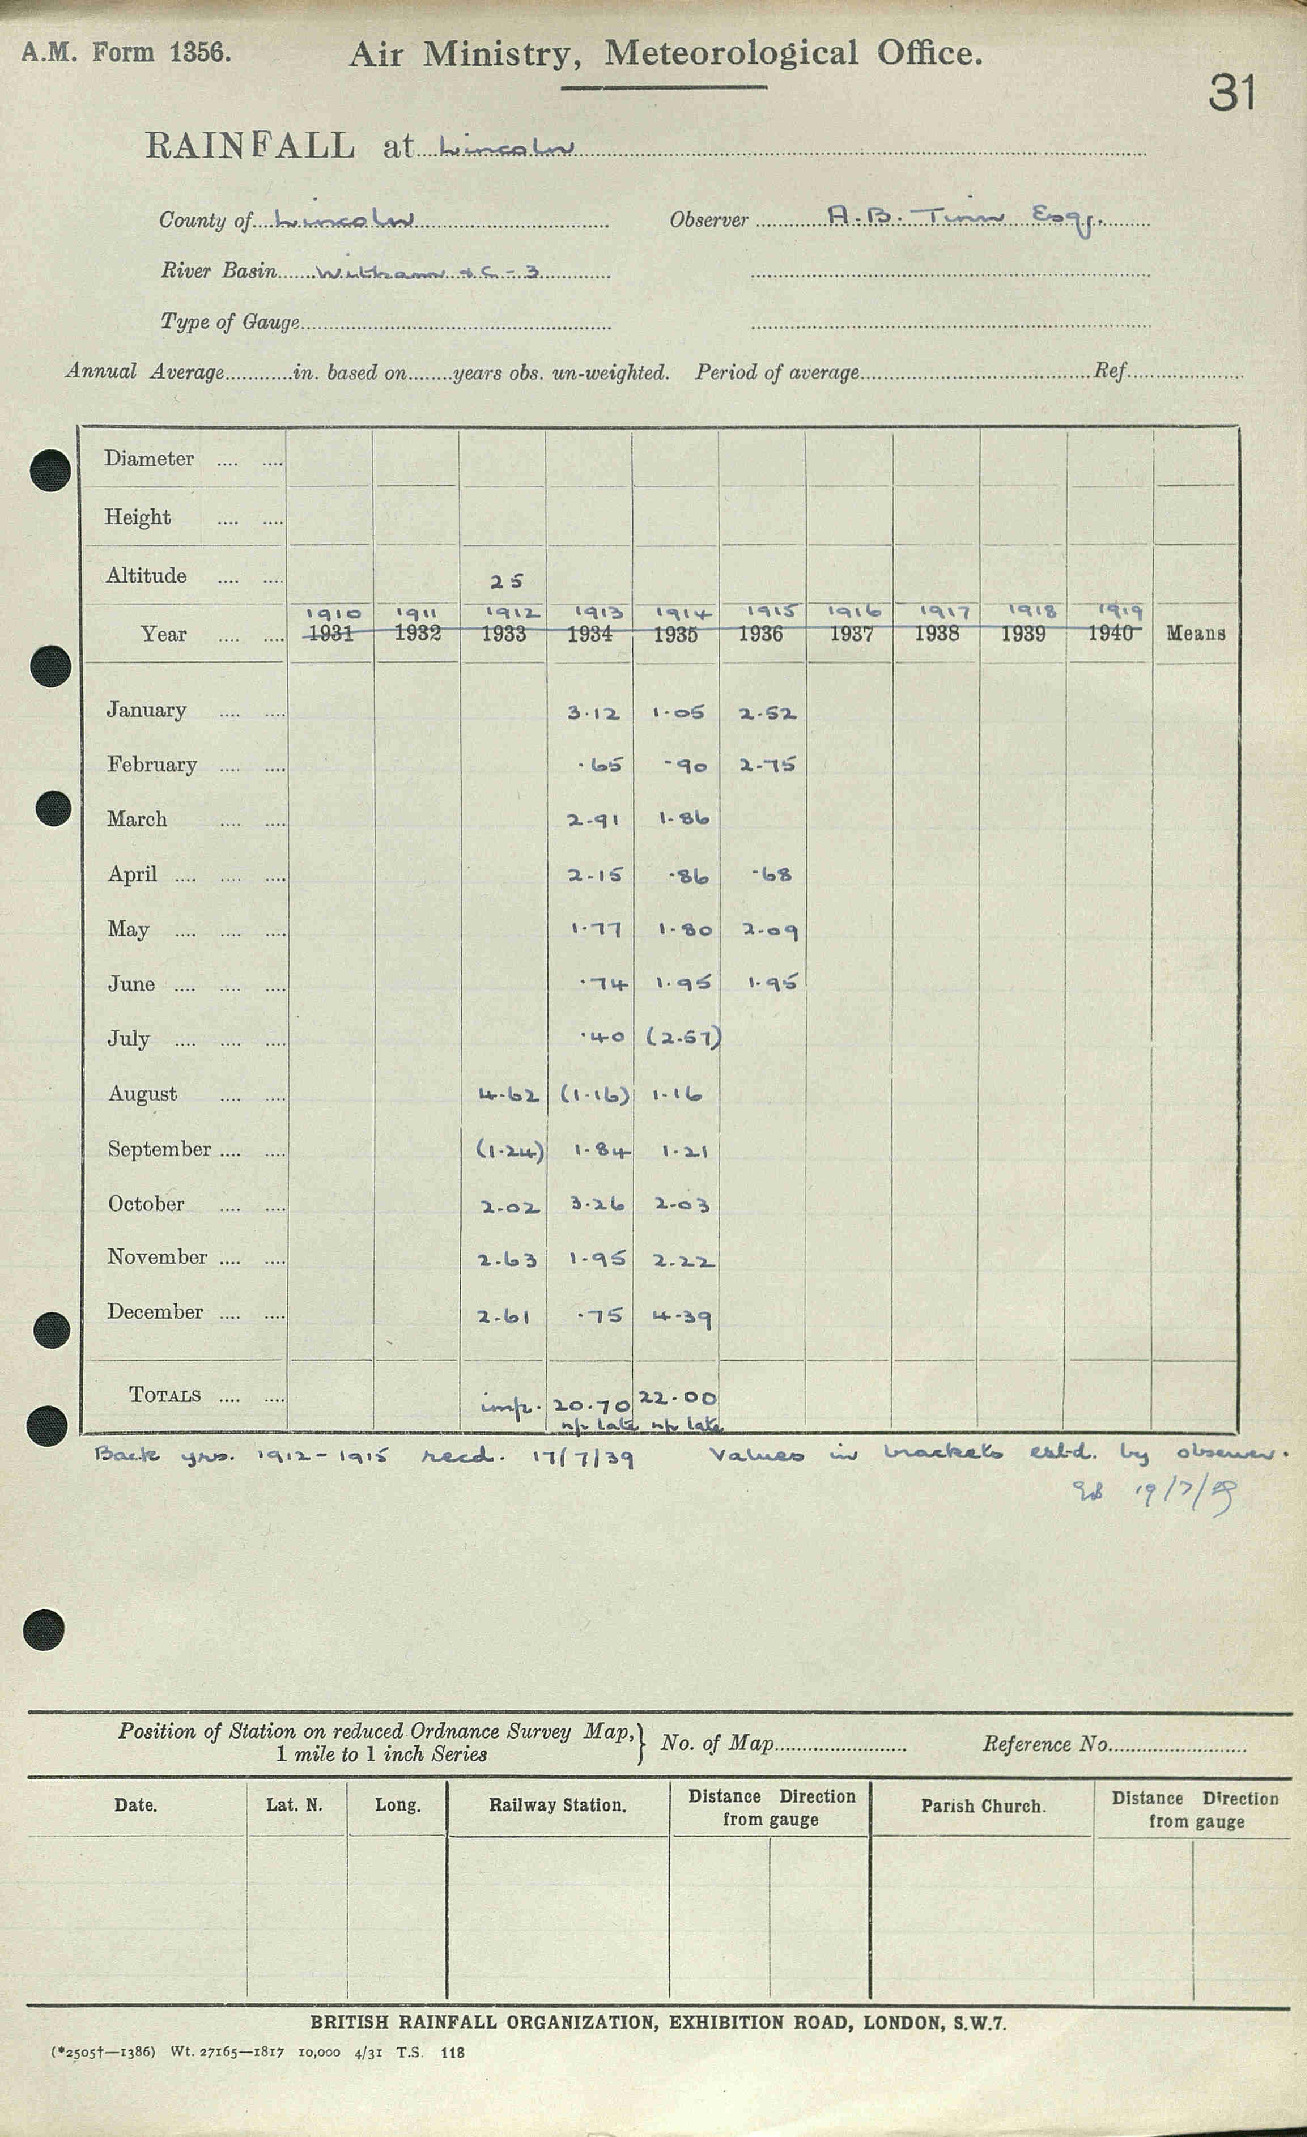 A.M. Form 1356. Air Ministry, Meteorological Office.
31
RAINFALL at Lincoln
County of Lincoln Observer A.B. Tinn Esq.
River Basin Witham &c - 3
Type of Gauge
Annual Average in. based on years obs. un-weighted. Period of average Ref.
Diameter
Height
Altitude 25
1910 1911 1912 1913 1914 1915 1916 1917 1918 1919
Year 1931 1932 1933 1934 1935 1936 1937 1938 1939 1940 Means
January 3.12 1.05 2.52
February .65 .90 2.75
March 2.91 1.86
April 2.15 .86 .68
May 1.77 1.80 2.09
June .74 1.95 1.95
July .40 (2.57)
August 4.62 (1.16) 1.16
September (1.24) 1.84 1.21
October 2.02 3.26 2.03
November 2.63 1.95 2.22
December 2.61 .75 4.39
TOTALS imp. 20.70 22.00
np late np late
Back yrs. 1912-1915 recd. 17/7/39 Values in brackets estd. by observer.
19/7/39
Position of Station on reduced Ordnance Survey Map,} No. of Map Reference No.
1 mile to 1 inch Series
Date. Lat. N. Long. Railway Station. Distance Direction from gauge Parish Church. Distance Direction from gauge
BRITISH RAINFALL ORGANIZATION, EXHIBITION ROAD, LONDON, S.W.7.
(*2505†—1386) Wt. 27165—1817 10,000 4/31 T.S. 118